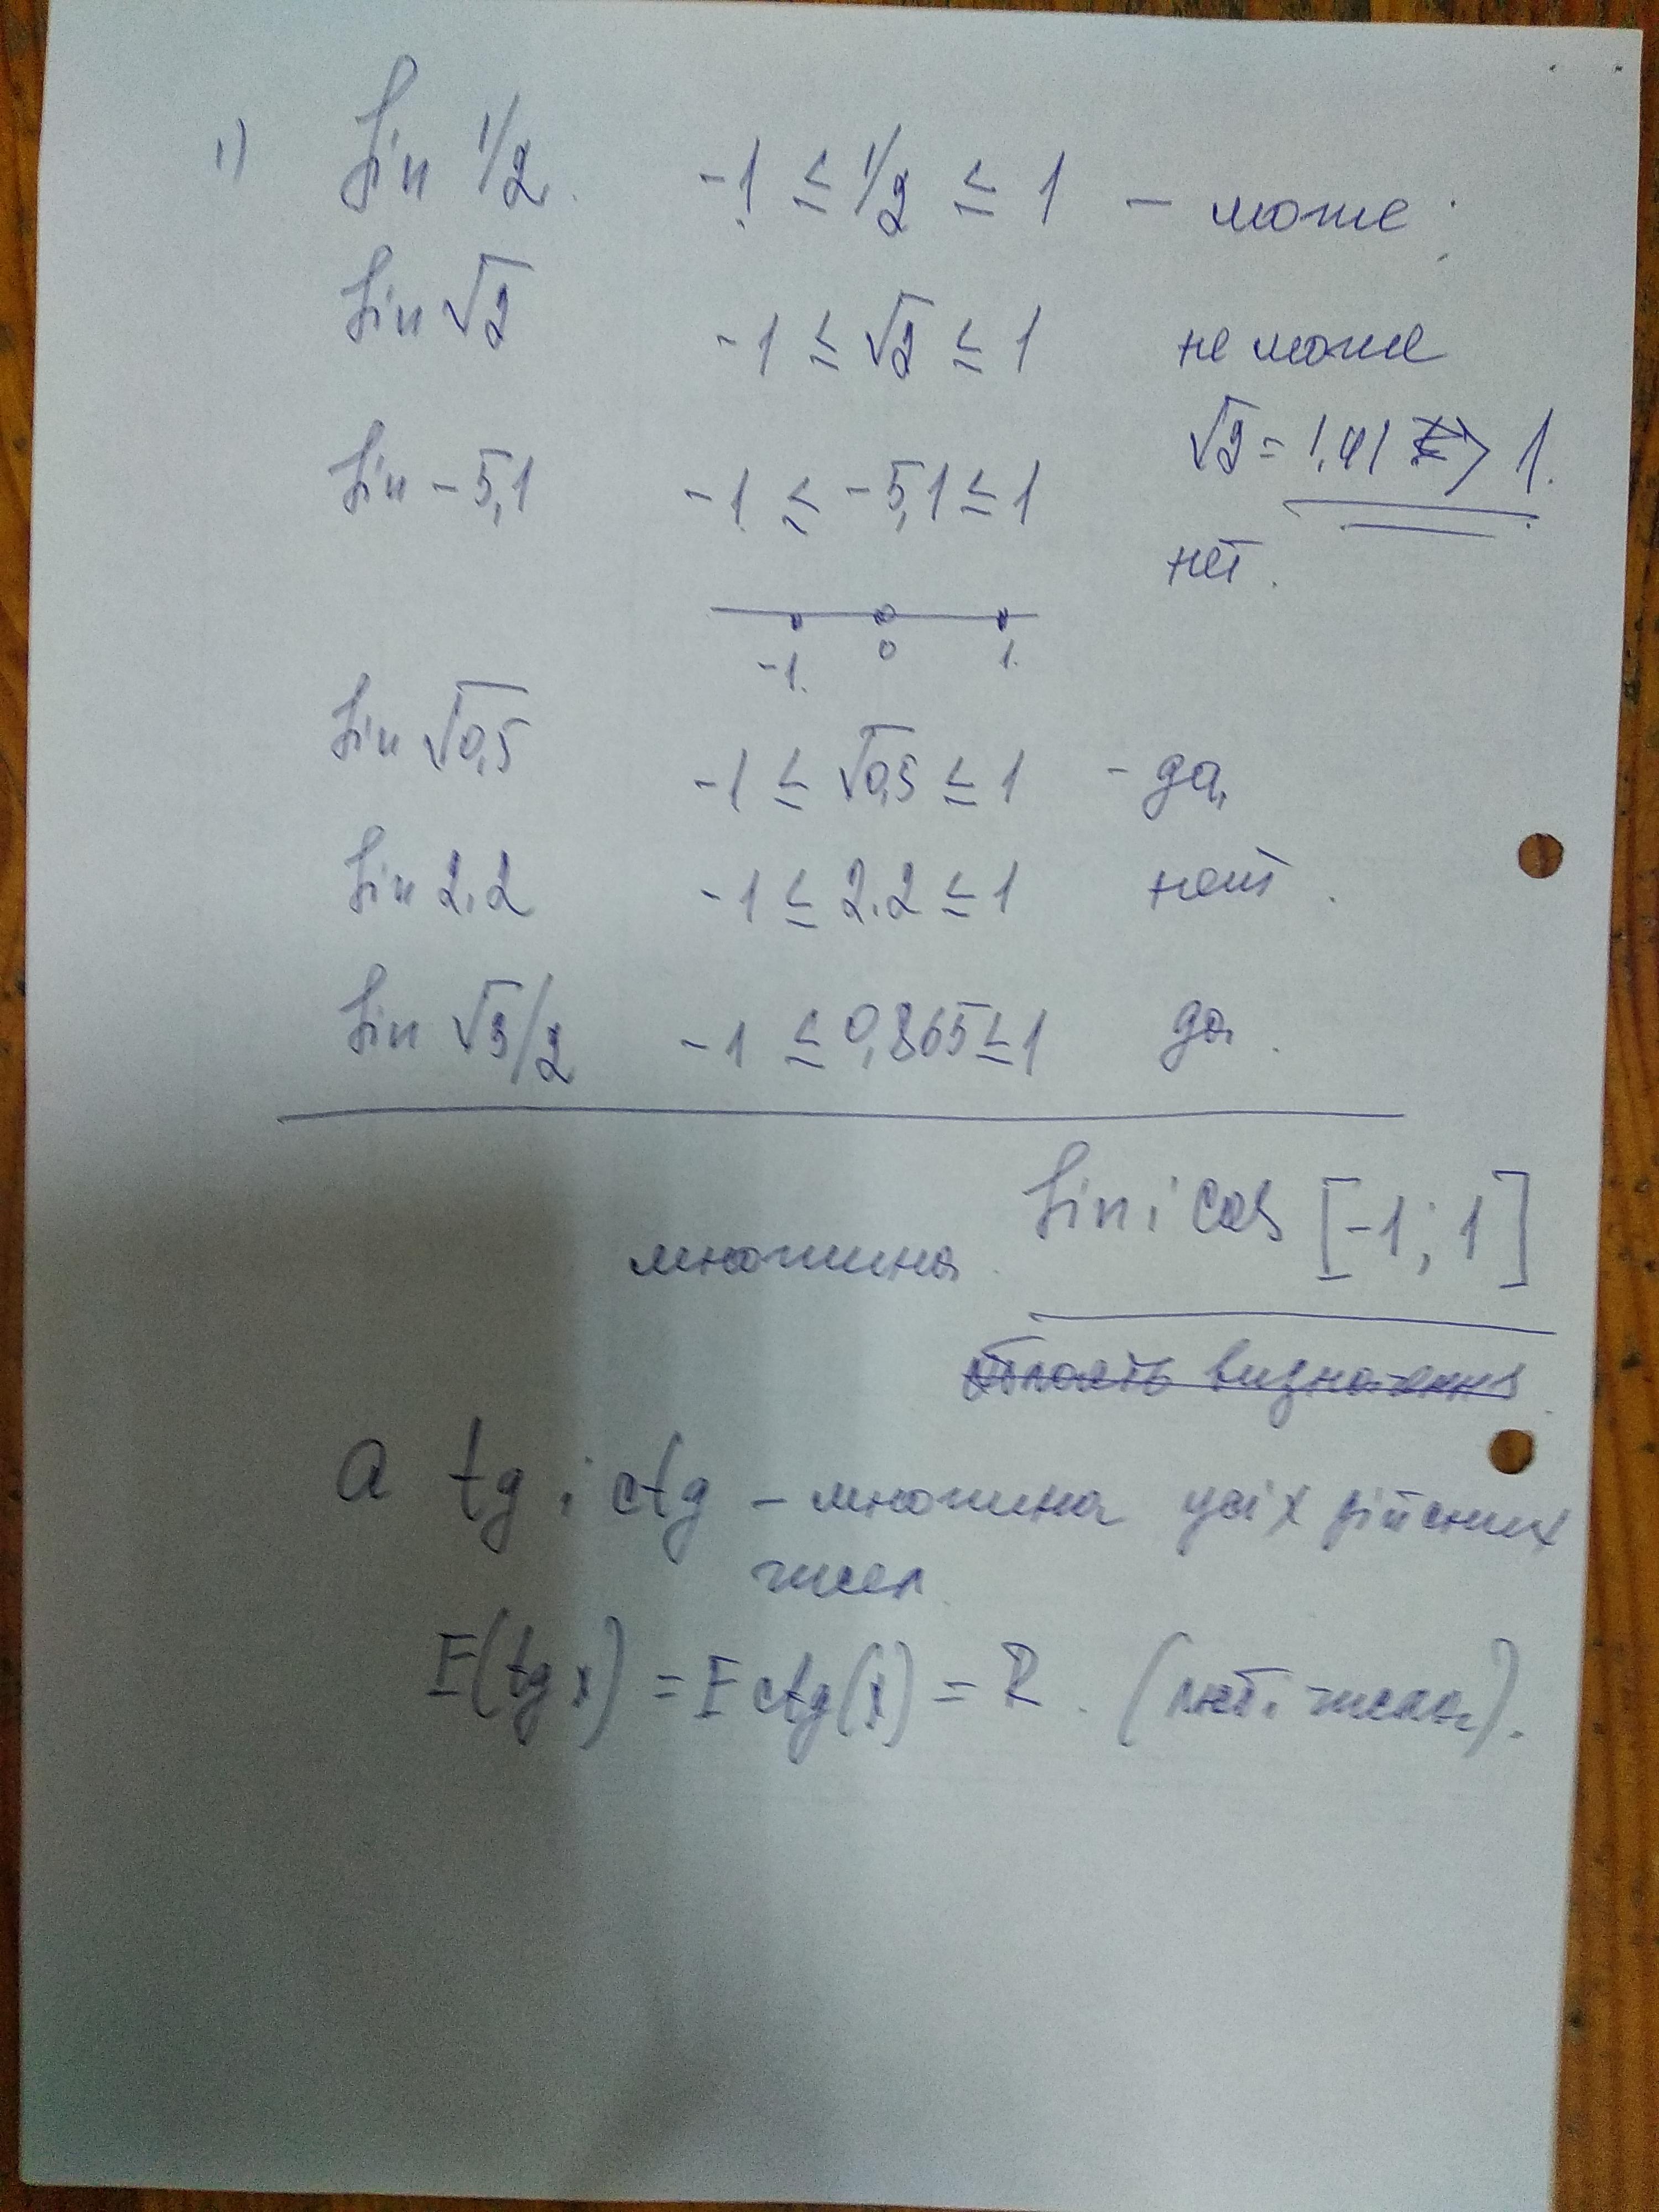 1) Sin 1/2. -1 ≤ 1/2 ≤ 1 - може;
Sin √2 -1 ≤ √2 ≤ 1 не може
√2 = 1,41 > 1.
Sin -5,1 -1 ≤ -5,1 ≤ 1
нет.
-1. 0 1.
Sin √0,5 -1 ≤ √0,5 ≤ 1 - да,
Sin 2.2 -1 ≤ 2.2 ≤ 1 нет.
Sin √3/2 -1 ≤ 0,865 ≤ 1 да.
Sin i cos [-1; 1]
множина
область визначення
а tg i ctg - множина усіх дійсних
чисел
E(tg x) = E ctg(x) = R. (любі числа).